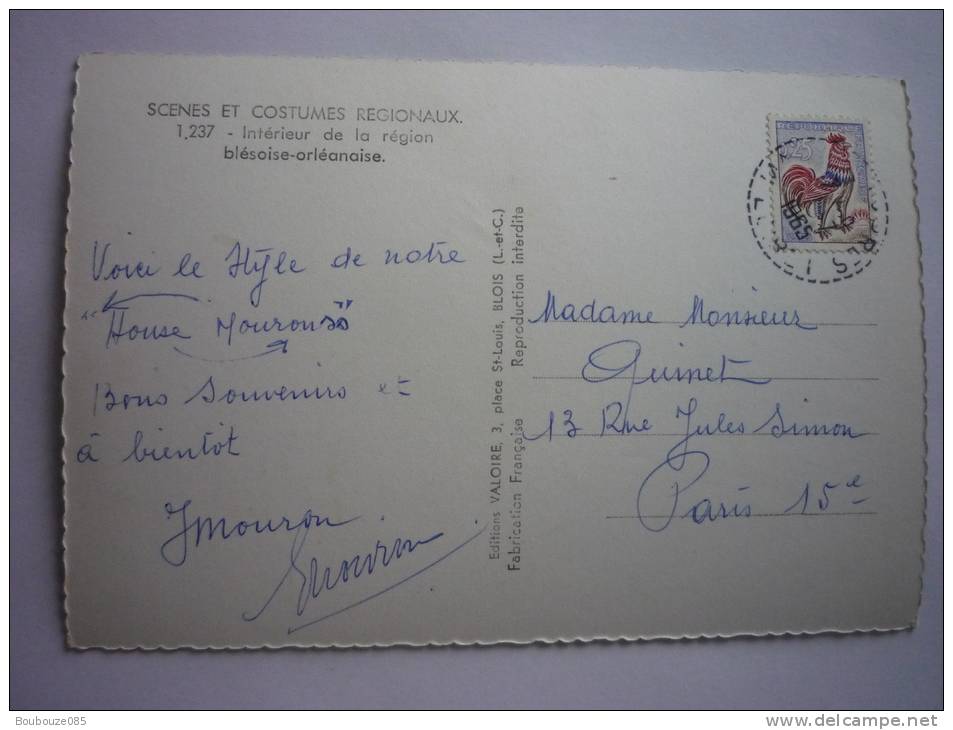 SCENES ET COSTUMES REGIONAUX.
1.237 - Intérieur de la région
blésoise-orléanaise.
Voici le Style de notre
"House Mourons"
Bons Souvenirs et
à bientôt
JMouron
Editions VALOIRE, 3, place St-Louis, BLOIS (L.-et-C.)
Fabrication Française Reproduction interdite
0,25
1965
Madame Monsieur
Quinet
13 Rue Jules Simon
Paris 15e
Boubouze085
www.delcampe.net